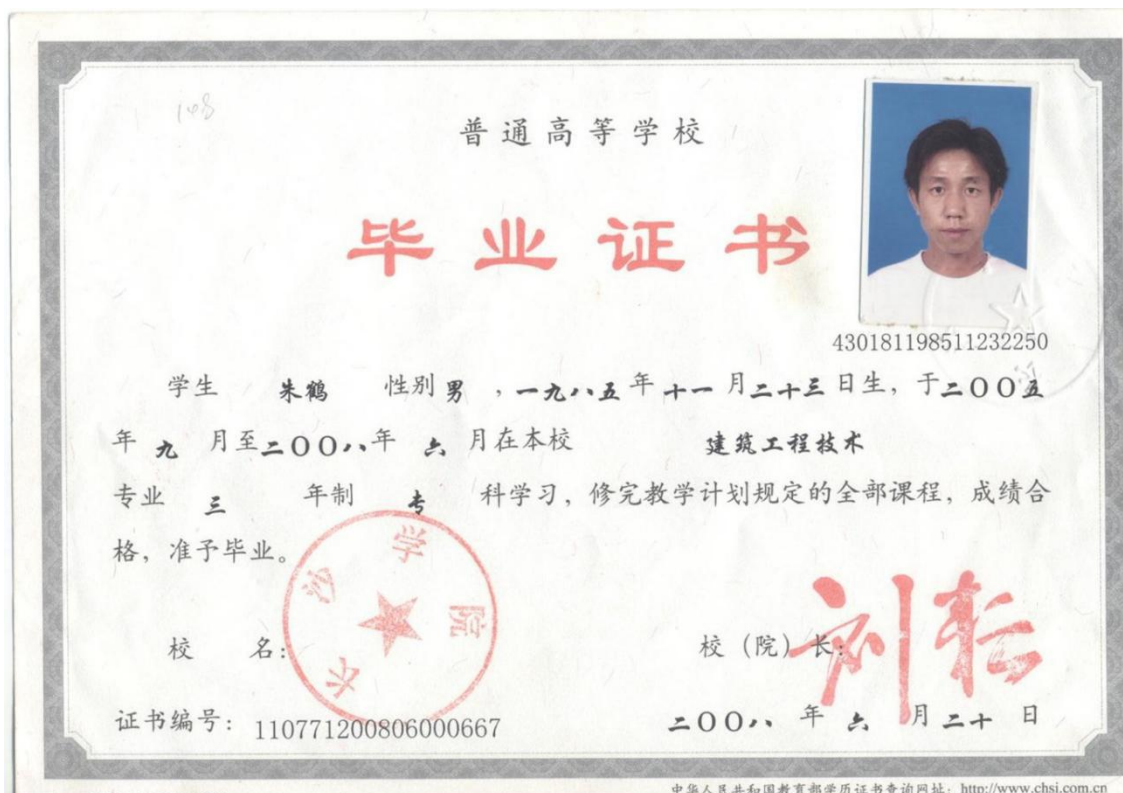 148
普通高等学校
毕业证书
430181198511232250
学生 朱鹤 性别 男 , 一九八五 年 十一 月 二十三 日生，于 二〇〇五
年 九 月至 二〇〇八 年 六 月在本校 建筑工程技术
专业 三 年制 专 科学习，修完教学计划规定的全部课程，成绩合
格，准予毕业。
长沙学院
校 名：
校（院）长：
刘耘
证书编号：110771200806000667
二〇〇八 年 六 月 二十 日
中华人民共和国教育部学历证书查询网址：http://www.chsi.com.cn